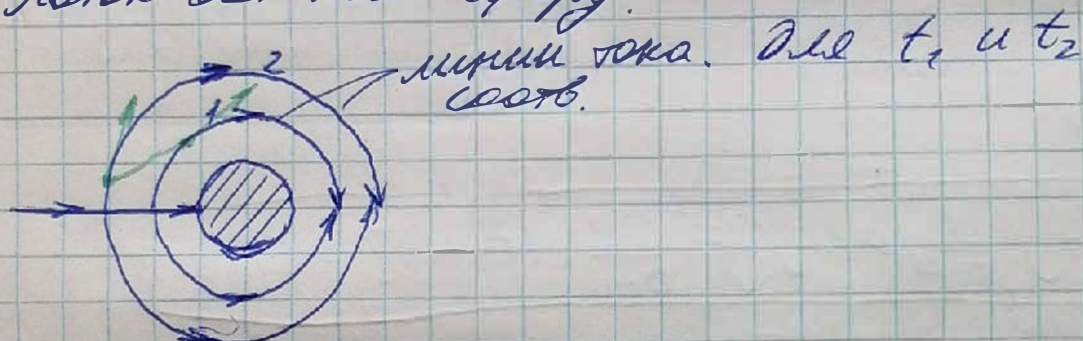 2 линии тока. для t₁ и t₂
1 соотв.